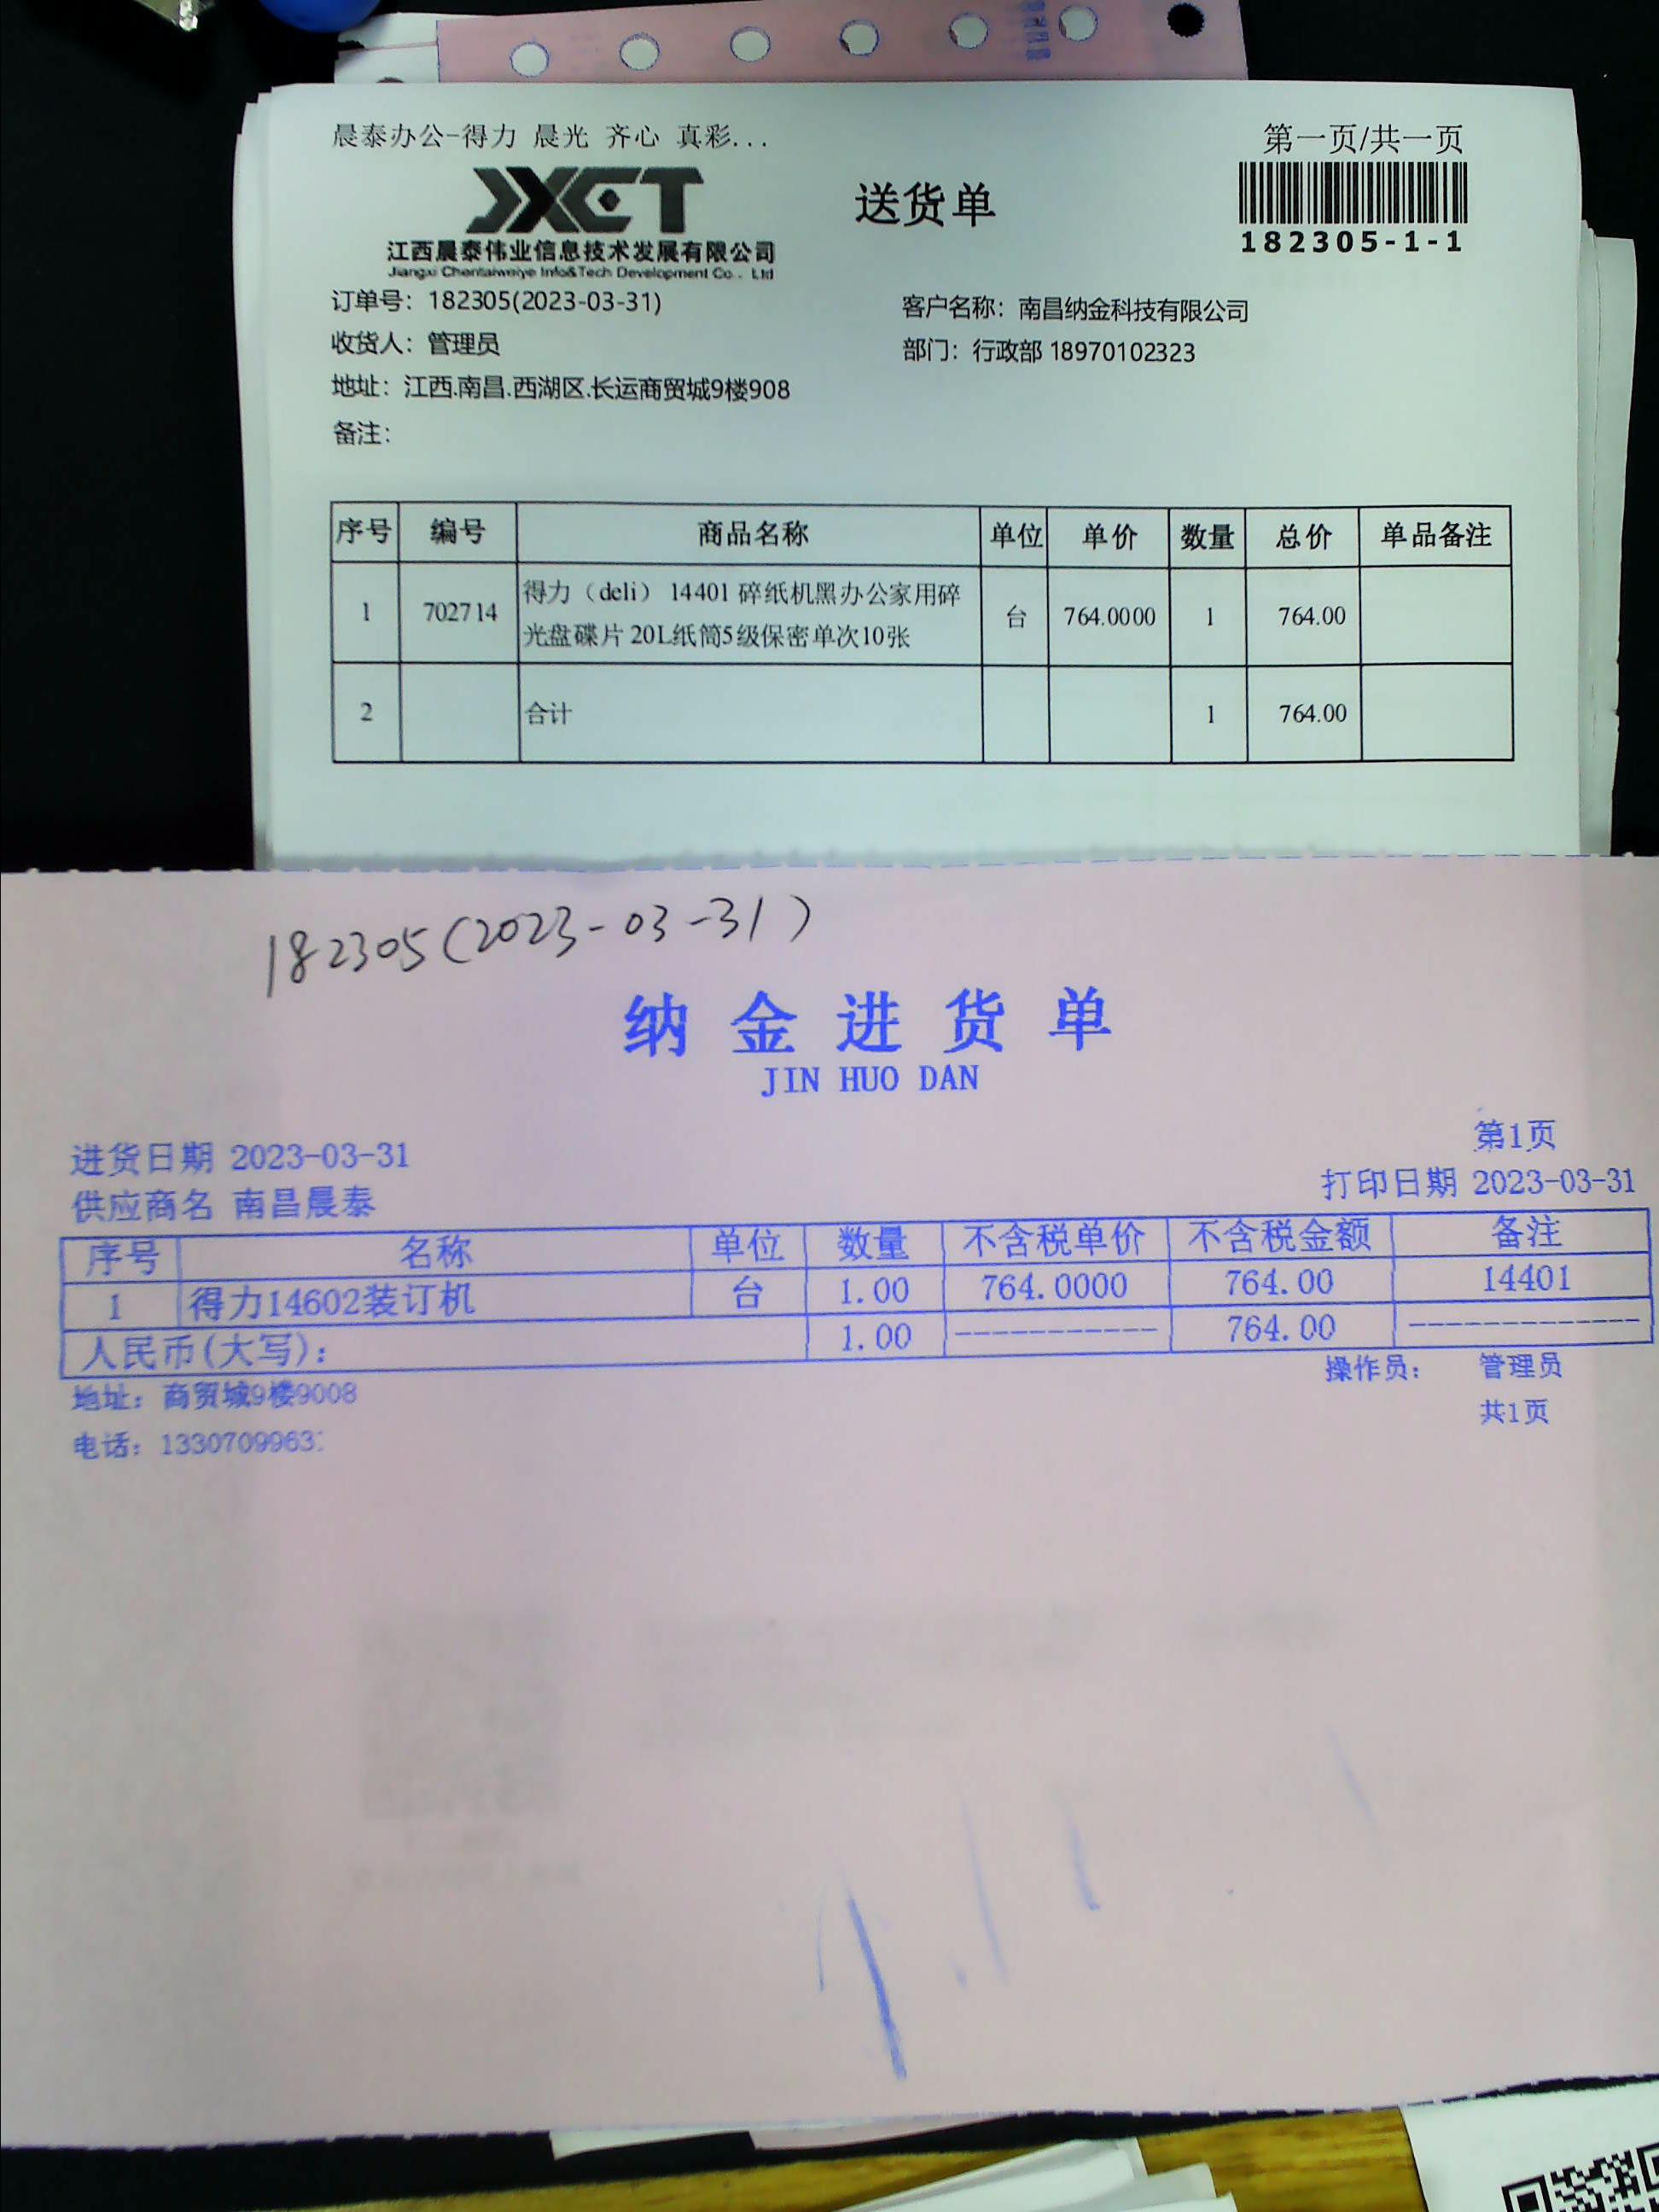 晨泰办公-得力 晨光 齐心 真彩...
第一页/共一页
JXCT
送货单
182305-1-1
江西晨泰伟业信息技术发展有限公司
Jiangxi Chentaiweiye Info&Tech Development Co.. Ltd
订单号：182305(2023-03-31)
客户名称：南昌纳金科技有限公司
收货人：管理员
部门：行政部 18970102323
地址：江西.南昌.西湖区.长运商贸城9楼908
备注：
序号 编号 商品名称 单位 单价 数量 总价 单品备注
1 702714 得力（deli） 14401 碎纸机黑办公家用碎 台 764.0000 1 764.00
光盘碟片 20L纸筒5级保密单次10张
2 合计 1 764.00
182305(2023-03-31)
纳金进货单
JIN HUO DAN
第1页
进货日期 2023-03-31
打印日期 2023-03-31
供应商名 南昌晨泰
序号 名称 单位 数量 不含税单价 不含税金额 备注
1 得力14602装订机 台 1.00 764.0000 764.00 14401
人民币(大写): 1.00 ------------ 764.00 --------------
地址：商贸城9楼9008
操作员： 管理员
共1页
电话：1330709963